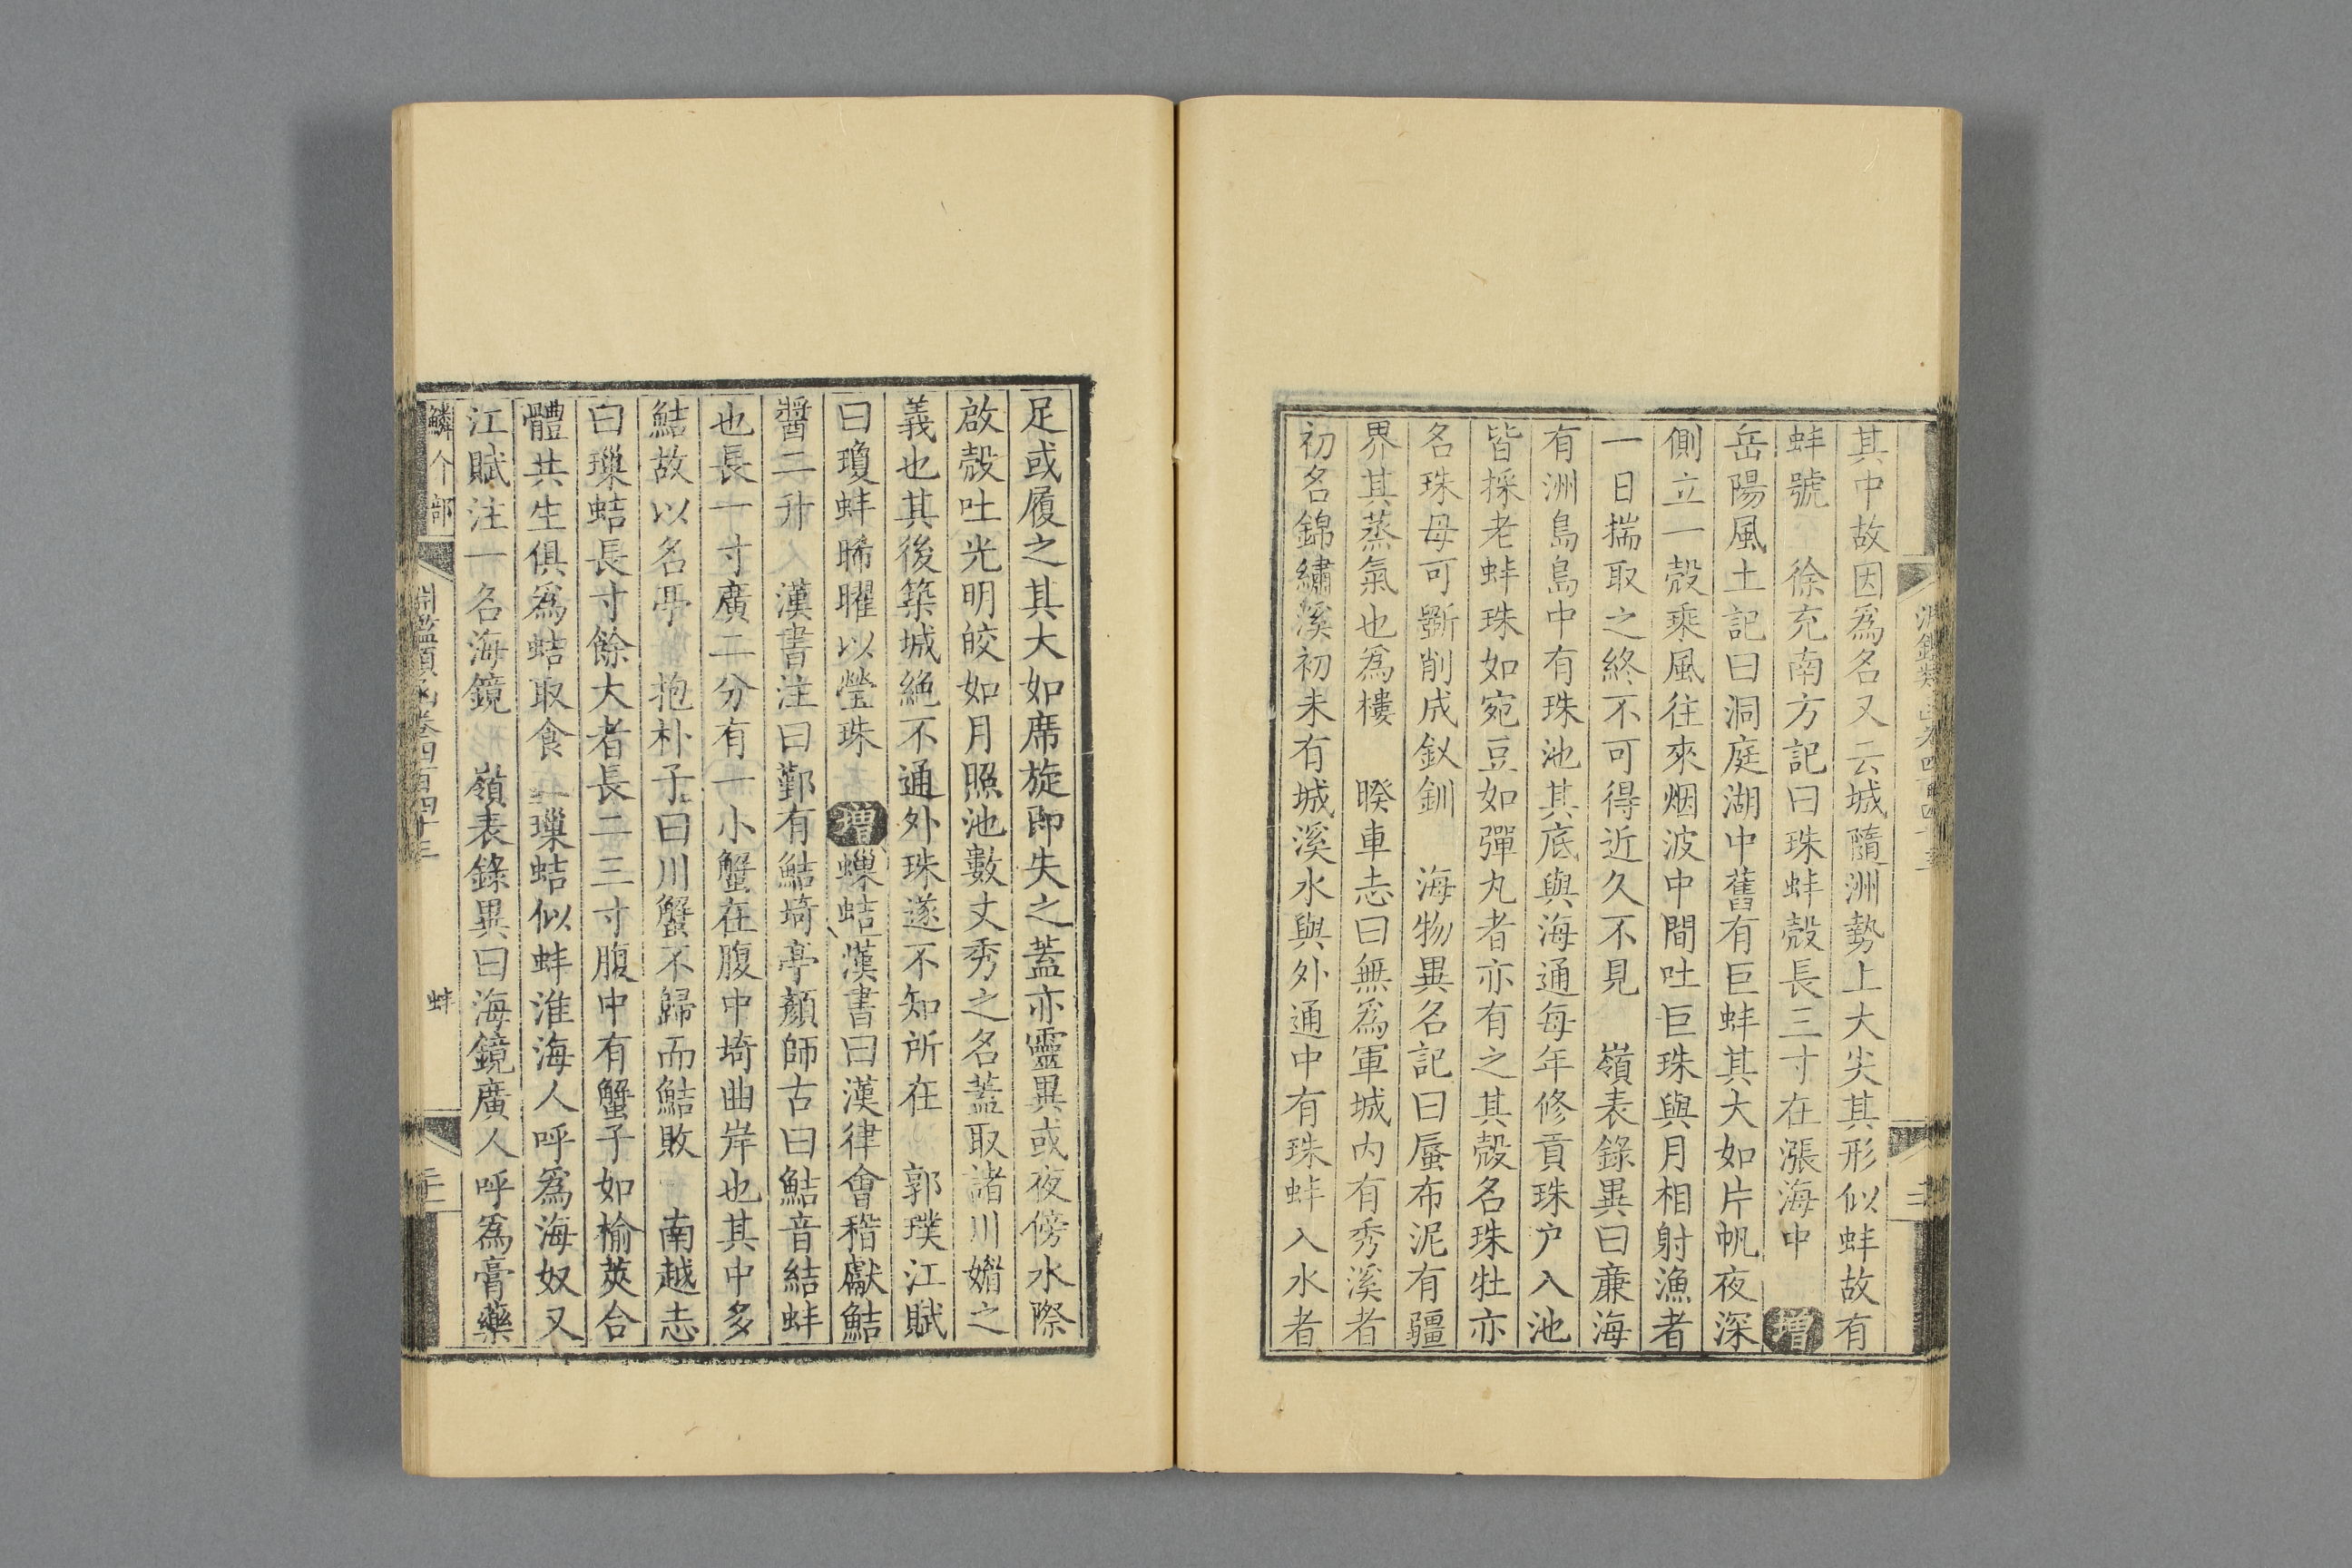 其中故因爲名又云城隨洲勢上大尖其形似蚌故有
蚌號　徐充南方記曰珠蚌殼長三寸在漲海中　增
岳陽風土記曰洞庭湖中舊有巨蚌其大如片帆夜深
側立一殼乘風往來烟波中間吐巨珠與月相射漁者
一日揣取之終不可得近久不見　嶺表錄異曰亷海
有洲島島中有珠池其底與海通每年修貢珠户入池
皆採老蚌珠如宛豆如彈丸者亦有之其殼名珠牡亦
名珠母可斵削成釵釧　海物異名記曰蜃布泥有疆
界其蒸氣也爲樓　睽車志曰無爲軍城内有秀溪者
初名錦繡溪初未有城溪水與外通中有珠蚌入水者
足或履之其大如席旋即失之蓋亦靈異或夜傍水際
啟殼吐光明皎如月照池數丈秀之名蓋取諸川媚之
義也其後築城絶不通外珠遂不知所在　郭璞江賦
曰瓊蚌晞曜以瑩珠　增蟱蛣漢書曰漢律會稽獻鮚
醬二升　漢書注曰鄞有鮚埼亭顏師古曰鮚音結蚌
也長一寸廣二分有一小蟹在腹中埼曲岸也其中多
鮚故以名亭　抱朴子曰川蟹不歸而鮚敗　南越志
曰璅蛣長寸餘大者長二三寸腹中有蟹子如榆莢合
體共生俱爲蛣取食　璅蛣似蚌淮海人呼爲海奴又
江賦注一名海鏡　嶺表錄異曰海鏡廣人呼爲膏藥
鱗介部　淵鑑類函卷四百四十三　蚌